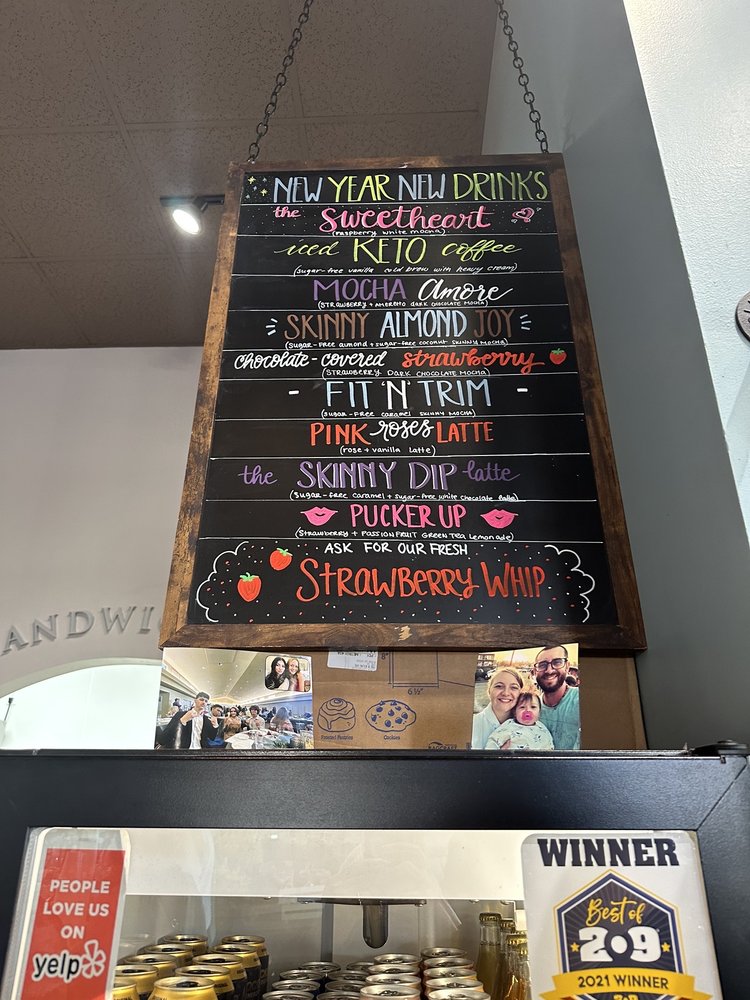 NEW YEAR NEW DRINKS
the Sweetheart
(raspberry white mocha)
iced KETO coffee
(sugar-free vanilla cold brew with heavy cream)
MOCHA amore
(STRAWBERRY + AMERETTO DARK CHOCOLATE MOCHA)
SKINNY ALMOND JOY
(Sugar-Free almond + sugar-free coconut SKINNY MOCHA)
chocolate-covered strawberry
(STRAWBERRY DARK CHOCOLATE MOCHA)
- FIT 'N' TRIM -
(SUGAR-FREE CARAMEL SKINNY MOCHA)
PINK roses LATTE
(rose + vanilla latte)
the SKINNY DIP latte
(sugar-free caramel + sugar-free white chocolate latte)
PUCKER UP
(Strawberry + PASSIONFRUIT GREEN Tea Lemonade)
ASK FOR OUR FRESH
STRAWBERRY WHIP
ANDWI
8"
6½"
Frosted Pastries
Cookies
PEOPLE
LOVE US
ON
yelp
WINNER
Best of
209
2021 WINNER